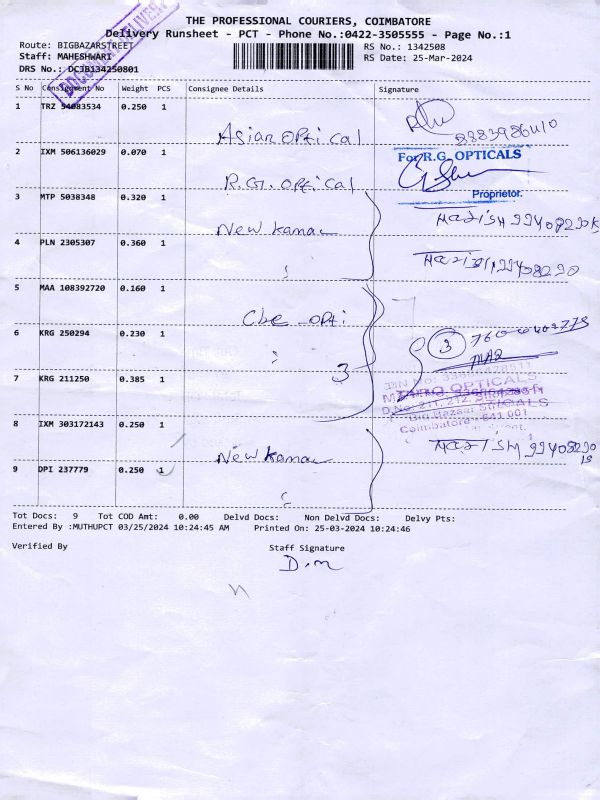 THE PROFESSIONAL COURIERS, COIMBATORE
Delivery Runsheet - PCT - Phone No.:0422-3505555 - Page No.:1
Route: BIGBAZARSTREET
RS No.: 1342508
Staff: MAHESHWARI
RS Date: 25-Mar-2024
DRS No.: DCJB134250801
DOCUMENT DELIVERY
S No Consignment No Weight PCS Consignee Details Signature
1 TRZ 54083534 0.250 1
Asian optical
2 IXM 506136029 0.070 1
For R.G. OPTICALS
R.G. optical
Proprietor.
3 MTP 5038348 0.320 1
New kamac
4 PLN 2305307 0.360 1
5 MAA 108392720 0.160 1
Cbe opti
6 KRG 250294 0.230 1
3
3
7 KRG 211250 0.385 1
OPTICALS
Big Bazaar Street
Coimbatore - 641 001
8 IXM 303172143 0.250 1
New kamac
9 DPI 237779 0.250 1
Tot Docs: 9 Tot COD Amt: 0.00 Delvd Docs: Non Delvd Docs: Delvy Pts:
Entered By :MUTHUPCT 03/25/2024 10:24:45 AM Printed On: 25-03-2024 10:24:46
Verified By Staff Signature
D.m